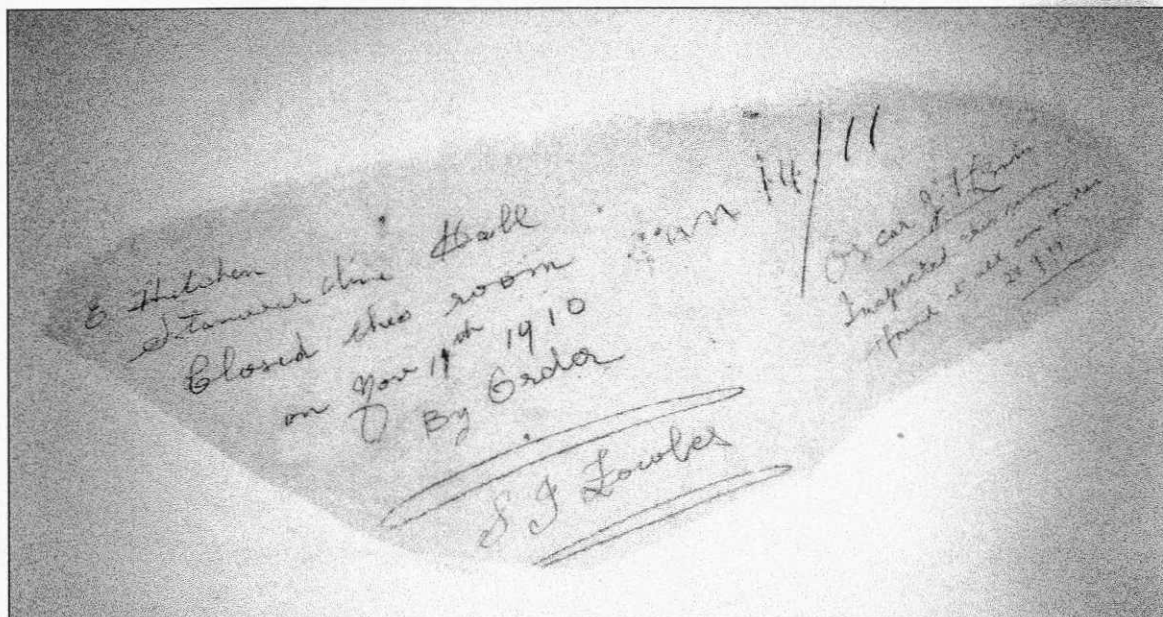 E Hutchen
Hall
Closed this room
on Nov 11th 1910
By Order
S J Fowles
Jan 14/11
Oscar
Inspected this room
found it all in order